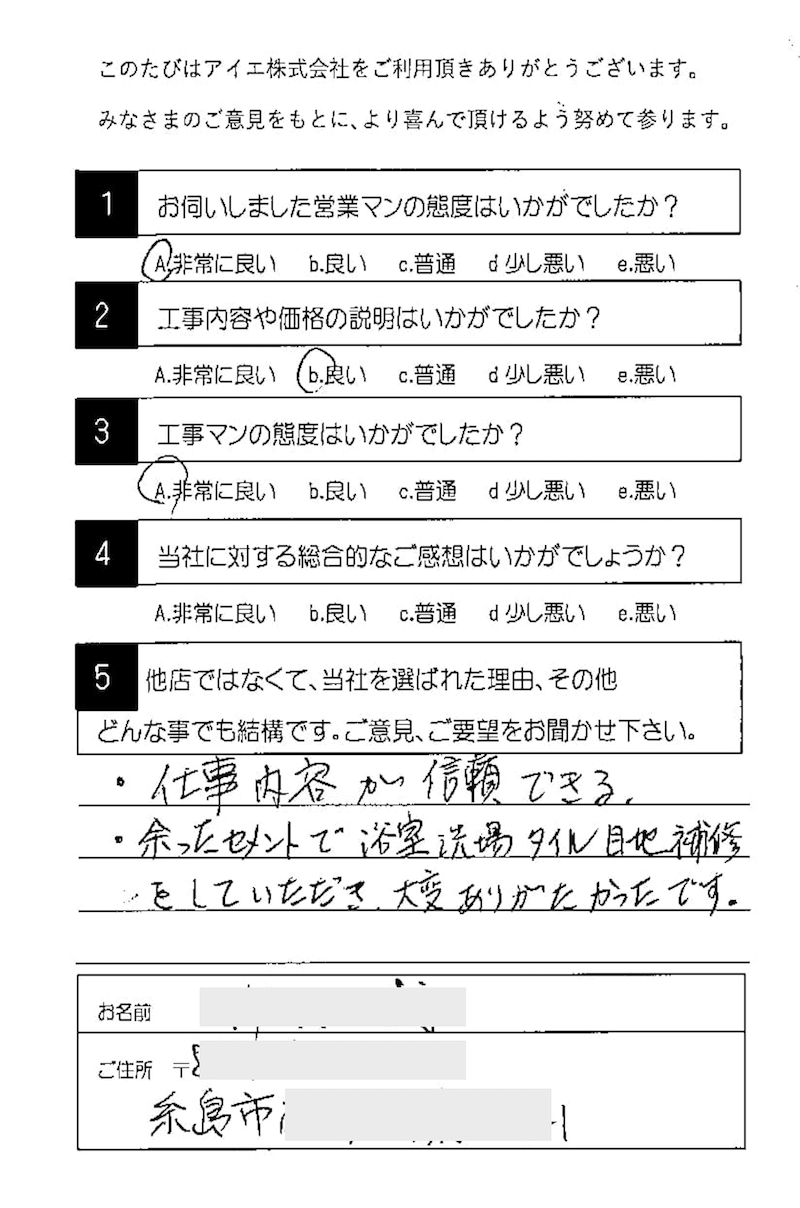 このたびはアイエ株式会社をご利用頂きありがとうございます。
みなさまのご意見をもとに、より喜んで頂けるよう努めて参ります。
1 お伺いしました営業マンの態度はいかがでしたか？
A.非常に良い b.良い c.普通 d 少し悪い e.悪い
2 工事内容や価格の説明はいかがでしたか？
A.非常に良い b.良い c.普通 d 少し悪い e.悪い
3 工事マンの態度はいかがでしたか？
A.非常に良い b.良い c.普通 d 少し悪い e.悪い
4 当社に対する総合的なご感想はいかがでしょうか？
A.非常に良い b.良い c.普通 d 少し悪い e.悪い
5 他店ではなくて、当社を選ばれた理由、その他
どんな事でも結構です。ご意見、ご要望をお聞かせ下さい。
・仕事内容が信頼できる。
・余ったセメントで浴室洗場タイル目地補修
をしていただき、大変ありがたかったです。
お名前
ご住所 〒
糸島市